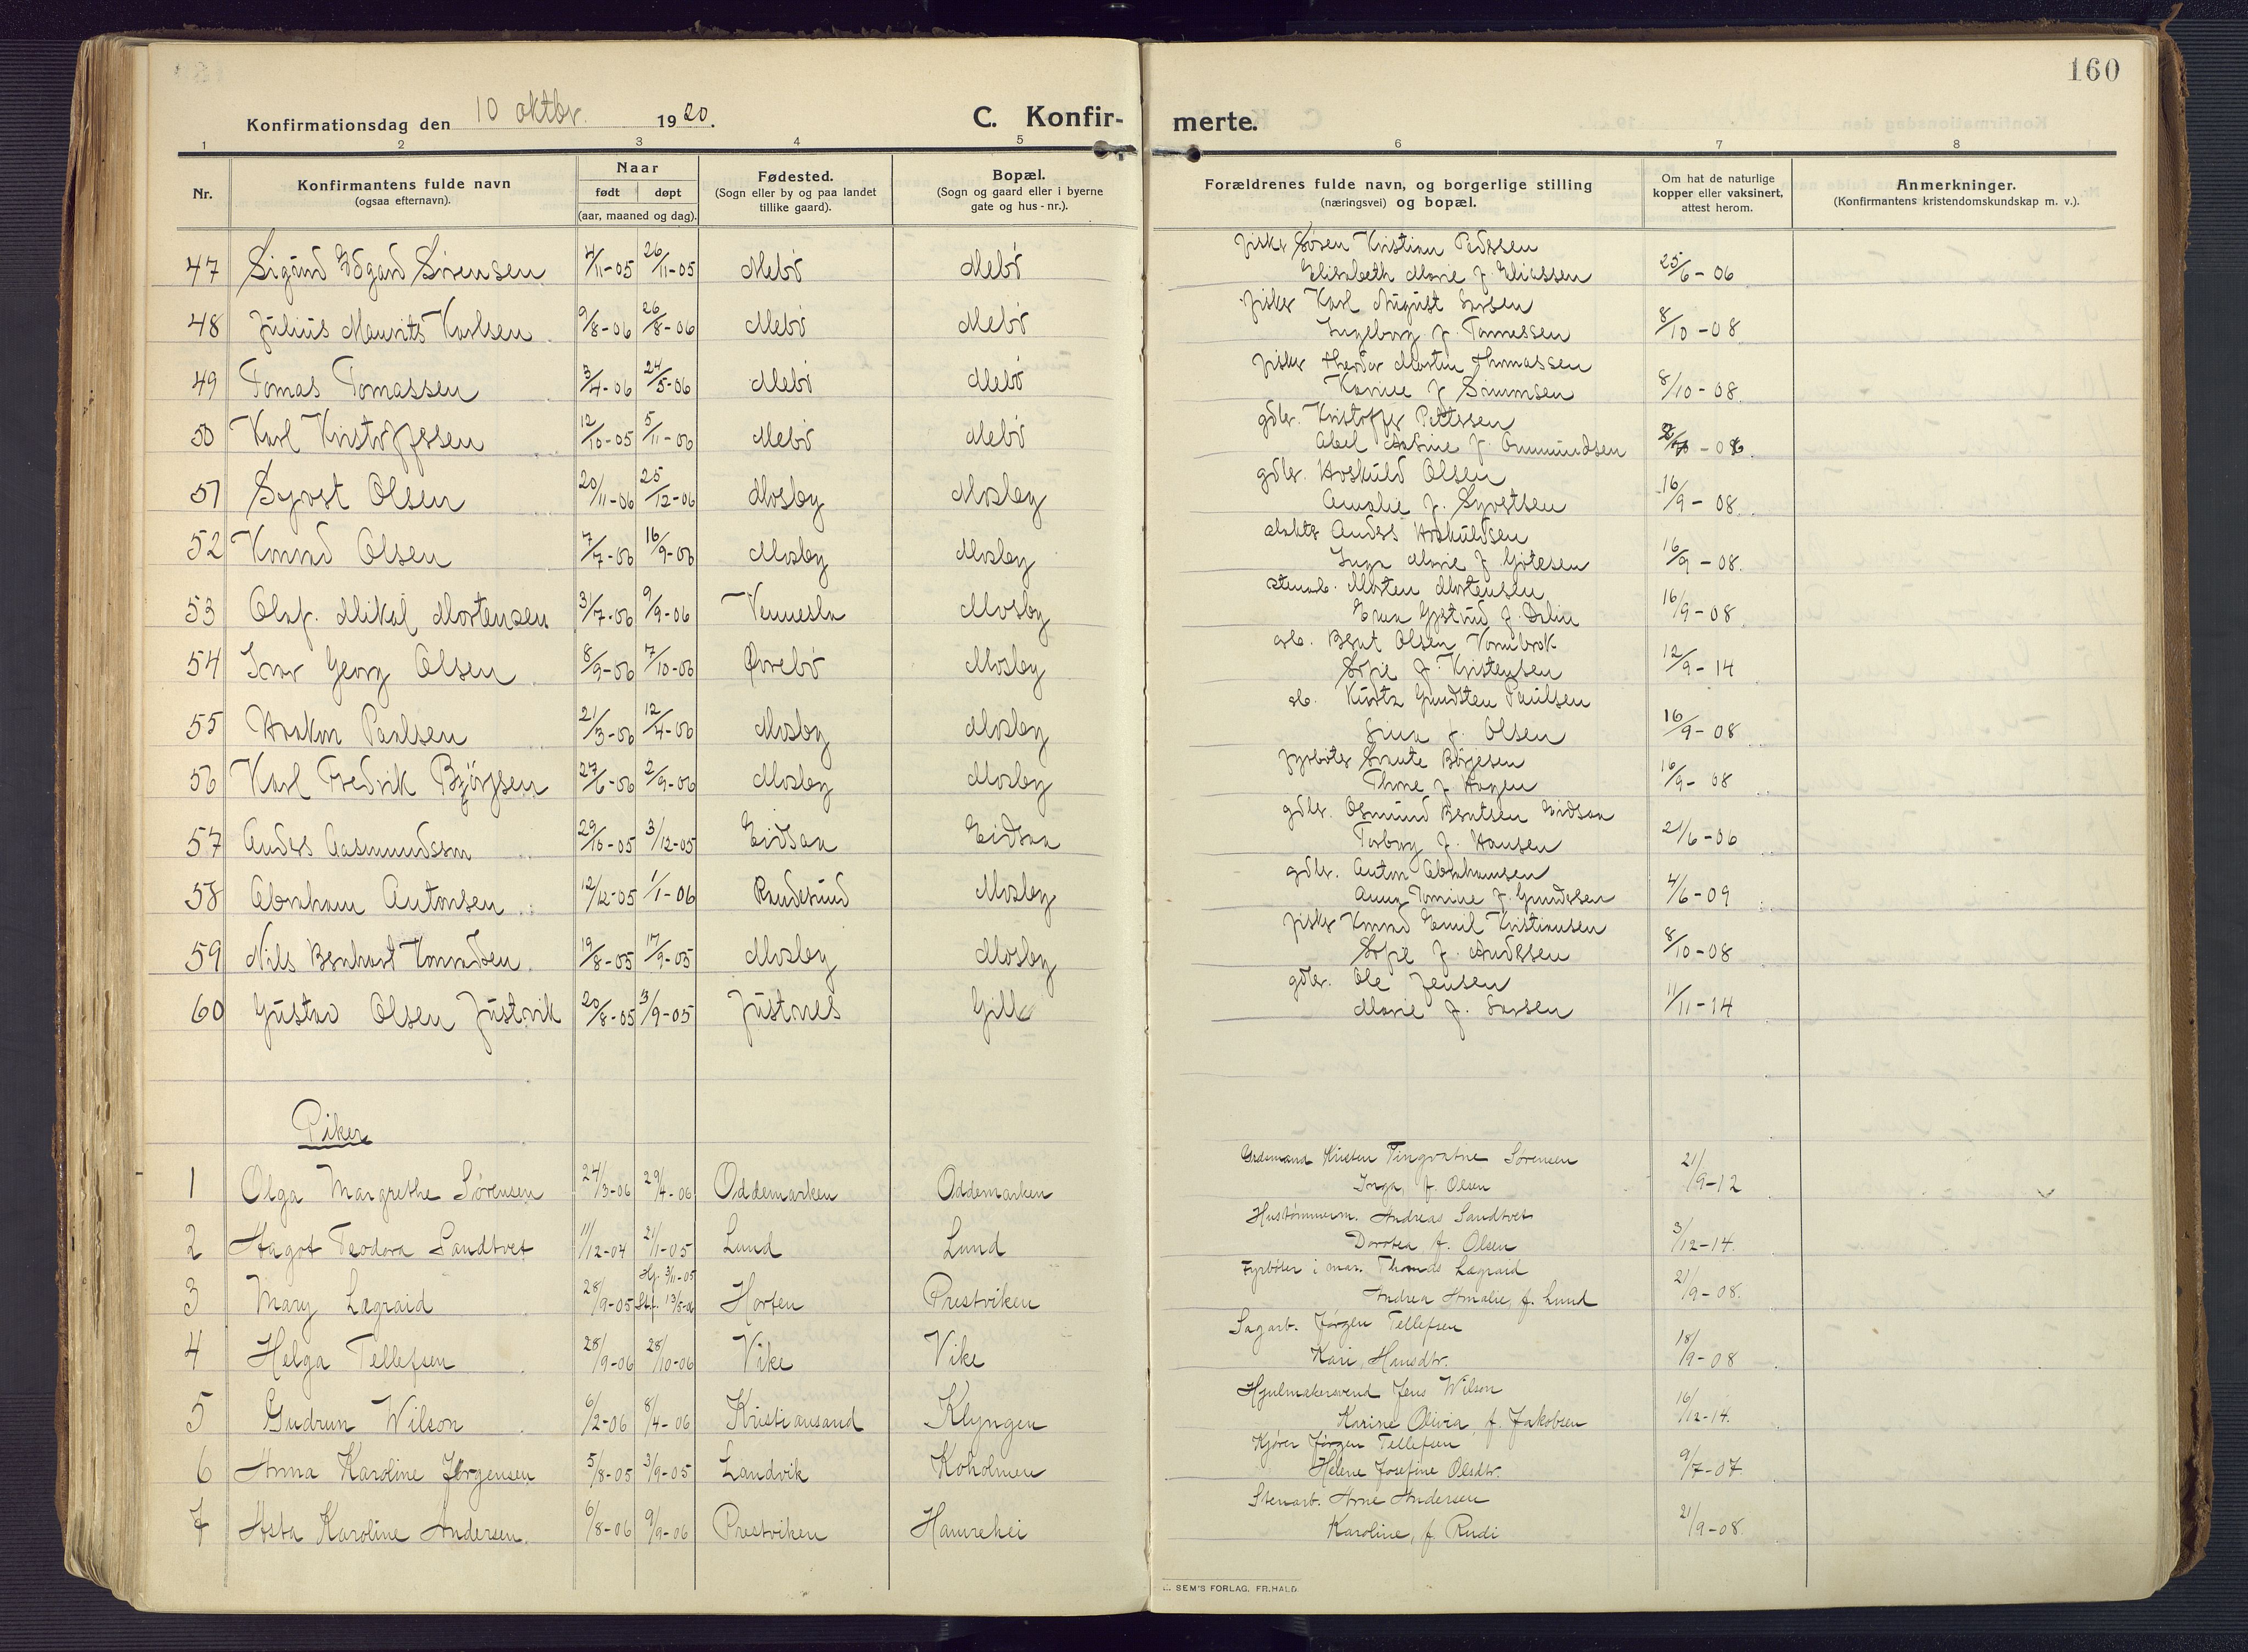 160
Konfirmationsdag den 10 oktbr. 1920.
C. Konfir-
merte.
1 2 3 4 5 6 7 8
Nr.
Konfirmantens fulde navn
(ogsaa efternavn).
Naar
født døpt
(aar, maaned og dag).
Fødested.
(Sogn eller by og paa landet
tillike gaard).
Bopæl.
(Sogn og gaard eller i byerne
gate og hus-nr.).
Forældrenes fulde navn, og borgerlige stilling
(næringsvei) og bopæl.
Om hat de naturlige
kopper eller vaksinert,
attest herom.
Anmerkninger.
(Konfirmantens kristendomskundskap m. v.).
47 Sigurd Edgard Sørensen 4/11-05 26/11-05 Mebø Mebø fisker Søren Kristian Pedersen
Elisabeth Marie f. Eliassen 25/6-06
48 Julius Maurits Karlsen 9/8-06 26/8-06 Mebø Mebø fisker Karl August Larsen
Ingeborg f. Tomessen 8/10-08
49 Tomas Tomassen 3/4-06 24/5-06 Mebø Mebø fisker Theodor Martin Thomassen
Karine f. Simonsen 8/10-08.
50 Karl Kristoffersen 12/10-05 5/11-06 Mebø Mebø gdbr. Kristoffer Pettersen
Abel f. Gunnundsen
51 Syvert Olsen 20/11-06 25/12-06 Mosby Mosby gdbr. Hoskuld Olsen
Amalie f. Syvertsen 16/9-08.
52 Konrad Olsen 7/7-06 16/9-06 Mosby Mosby Anders Hoskuldsen
Inga Marie f. Gitlesen 16/9-08.
53 Olaf. Mikal Mortensen 31/7-06 9/9-06 Vennesla Mosby stenarb. Morten Mortensen
Gjertrud f. 16/9-08
54 Ivar Georg Olsen 8/9-06 7/10-06 Øvrebø Mosby arb. Bernt Olsen Vormbrok
Sofie f. Kristensen 12/9-14
55 Haakon Paulsen 21/3-06 12/4-06 Mosby Mosby Gundsten Paulsen
f. Olsen 16/9-08
56 Karl Fredrik Bjørgsen 27/6-06 2/9-06 Mosby Mosby fyrbøter Børjesen
Thone f. Hagen 16/9-08
57 Anders Aasmundsen 29/10-05 3/12-05 Eidsaa Eidsaa gdbr. Osmund Berntsen Eidsaa
Torborg f. Hansen 21/6-06
58 Abraham Antonsen 12/12-05 1/1-06 Randesund Mosby gdbr. Anton Abrahamsen
Anna Tomine f. Gundersen 4/6-09
59 Nils Bernhart Konradsen 19/8-05 17/9-05 Mosby Mosby fisker Konrad Emil Kristiansen
Sofie f. Andersen 8/10-08
60 Gustav Olsen Justvik 20/8-05 3/9-05 Justnes Gill gdbr. Ole Jensen
Marie f. Larsen 11/11-14
Piker
1 Olga Margrethe Sørensen 24/3-06 29/4-06 Oddemarken Oddemarken Kristen Tingvatne Sørensen
Inga, f. Olsen 21/9-12
2 Hagot Teodora Sandtvet 11/12-04 21/1-05 Lund Lund Hustømmerm. Andreas Sandtvet
Dorotea, f. Olsen 3/12-14.
3 Mary Lægraid 28/9-05 Hj. 3/11-05
Stf. 13/5-06 Horten Prestviken Fyrbøter i mar. Thomas Lægraid
Andrea Amalie, f. Lund 21/9-08.
4 Helga Tellefsen 28/9-06 28/10-06 Vike Vike Sagarb. Jørgen Tellefsen
Kari, Hansdtr. 18/9-08
5 Gudrun Wilson 6/2-06 8/4-06 Kristiansand Klyngen Hjulmakersvend Jens Wilson
Karine Olivia, f. Jakobsen 16/12-14.
6 Anna Karoline Jørgensen 5/8-05 3/9-05 Landvik Koholmen Kjører Jørgen Tellefsen
Helene Josefine Olsdtr. 9/7-07.
7 Asta Karoline Andersen. 6/8-06 9/9-06 Prestviken Hamrehei Stenarb. Arne Andersen
Karoline, f. Rudi 21/9-08.
E. SEM'S FORLAG, FR.HALD.